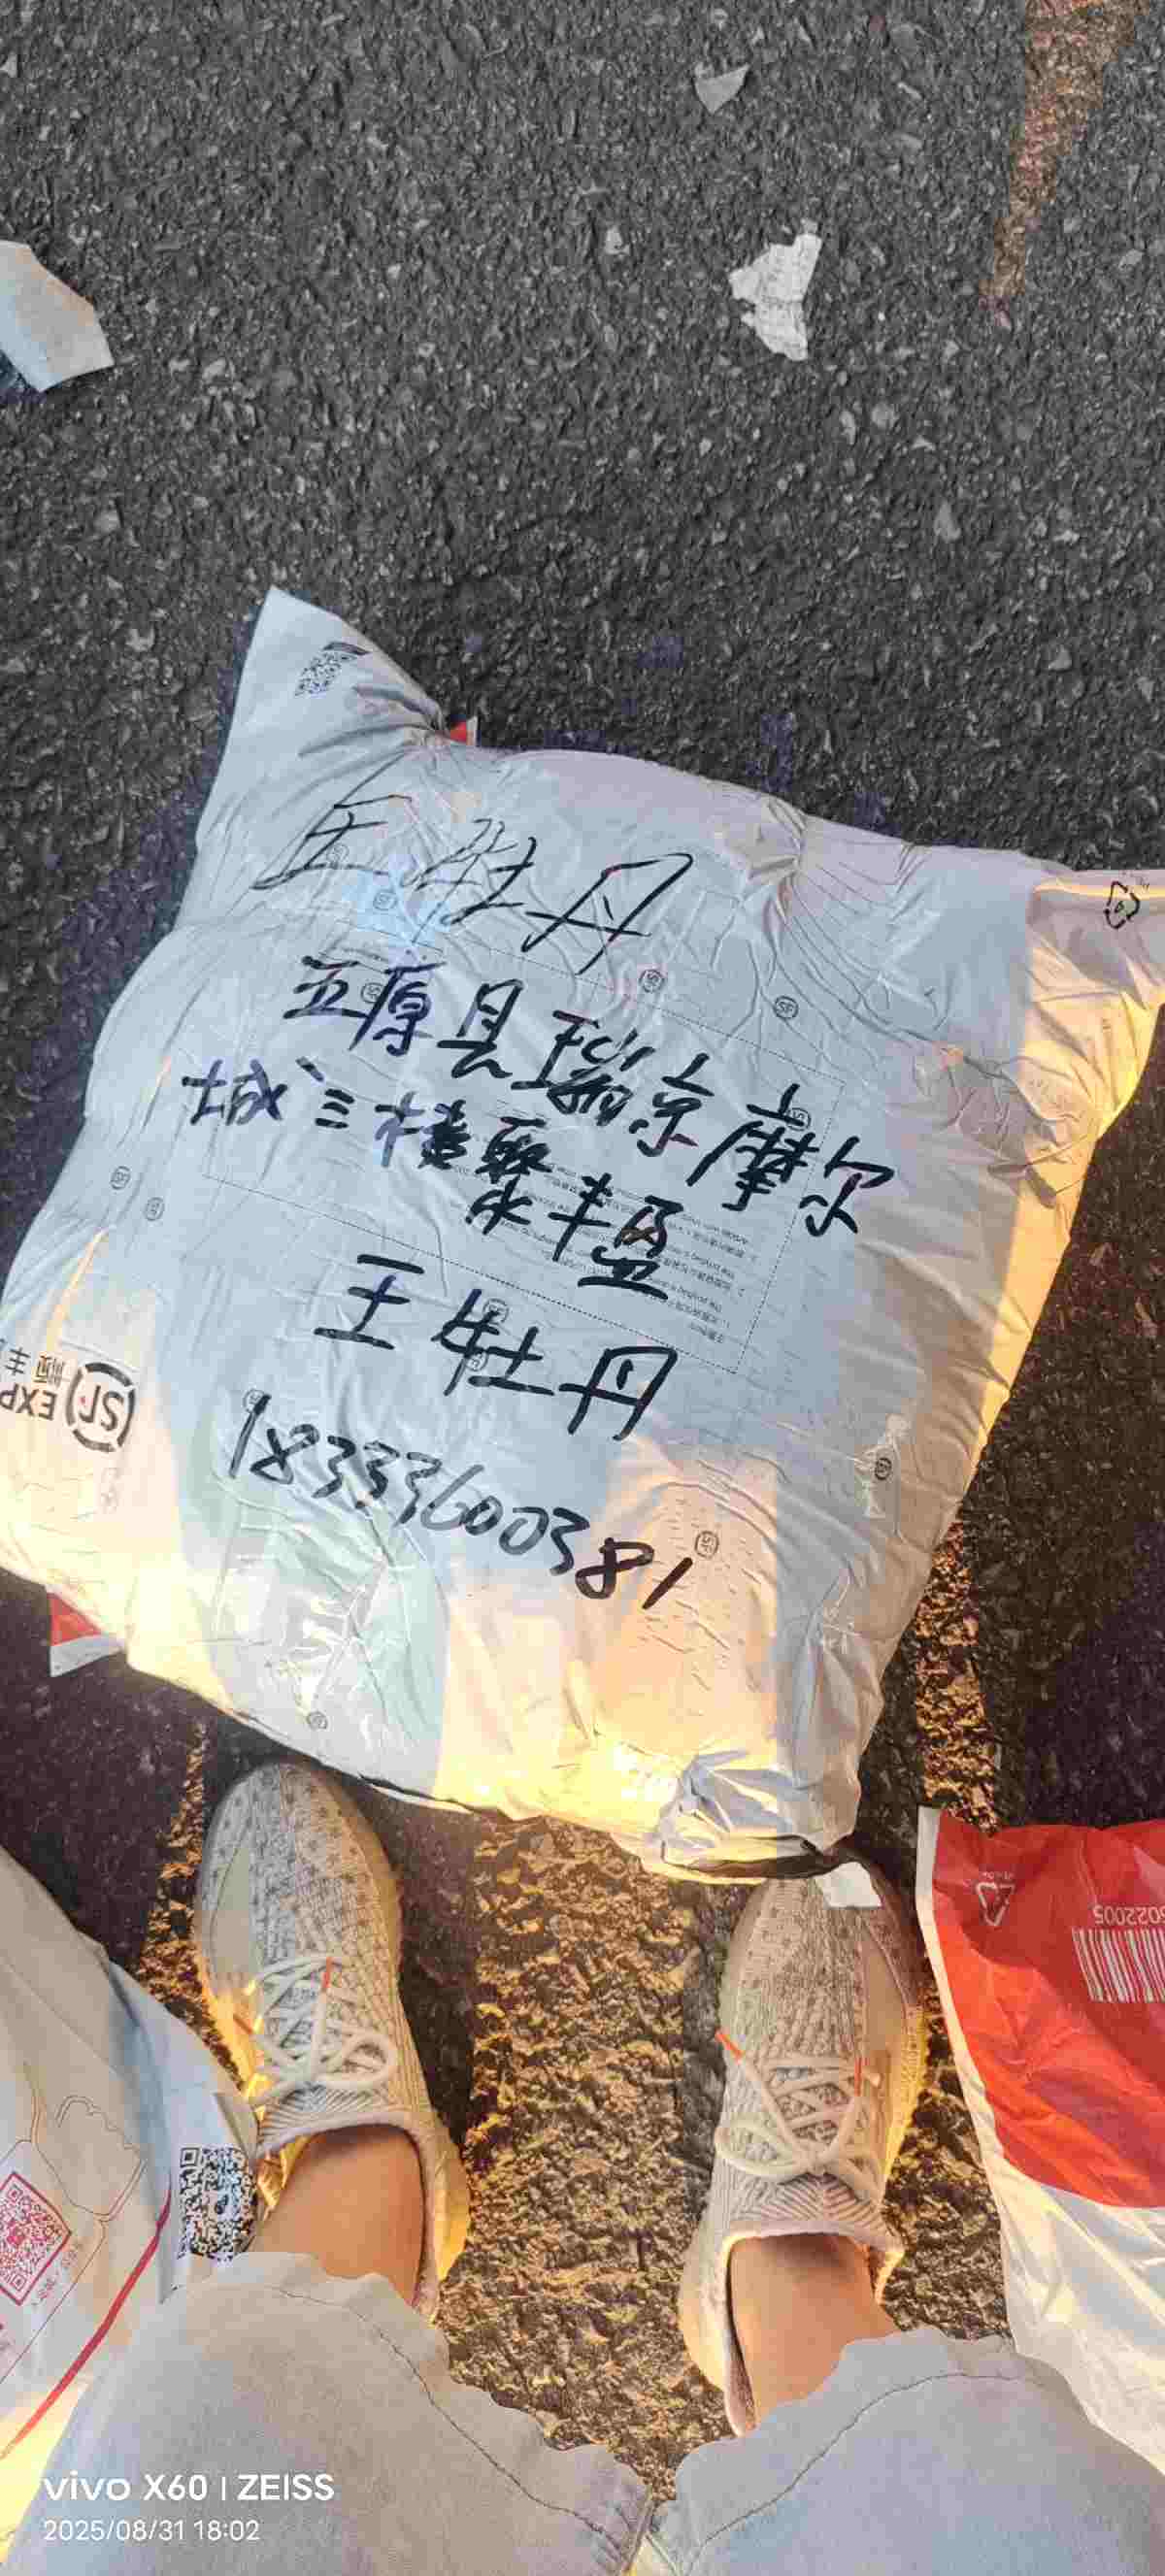 王牡丹
五原县瑞京摩尔
城三楼聚丰盈
王牡丹
18333600381
SF
EXP
5022005
vivo X60 | ZEISS
2025/08/31 18:02